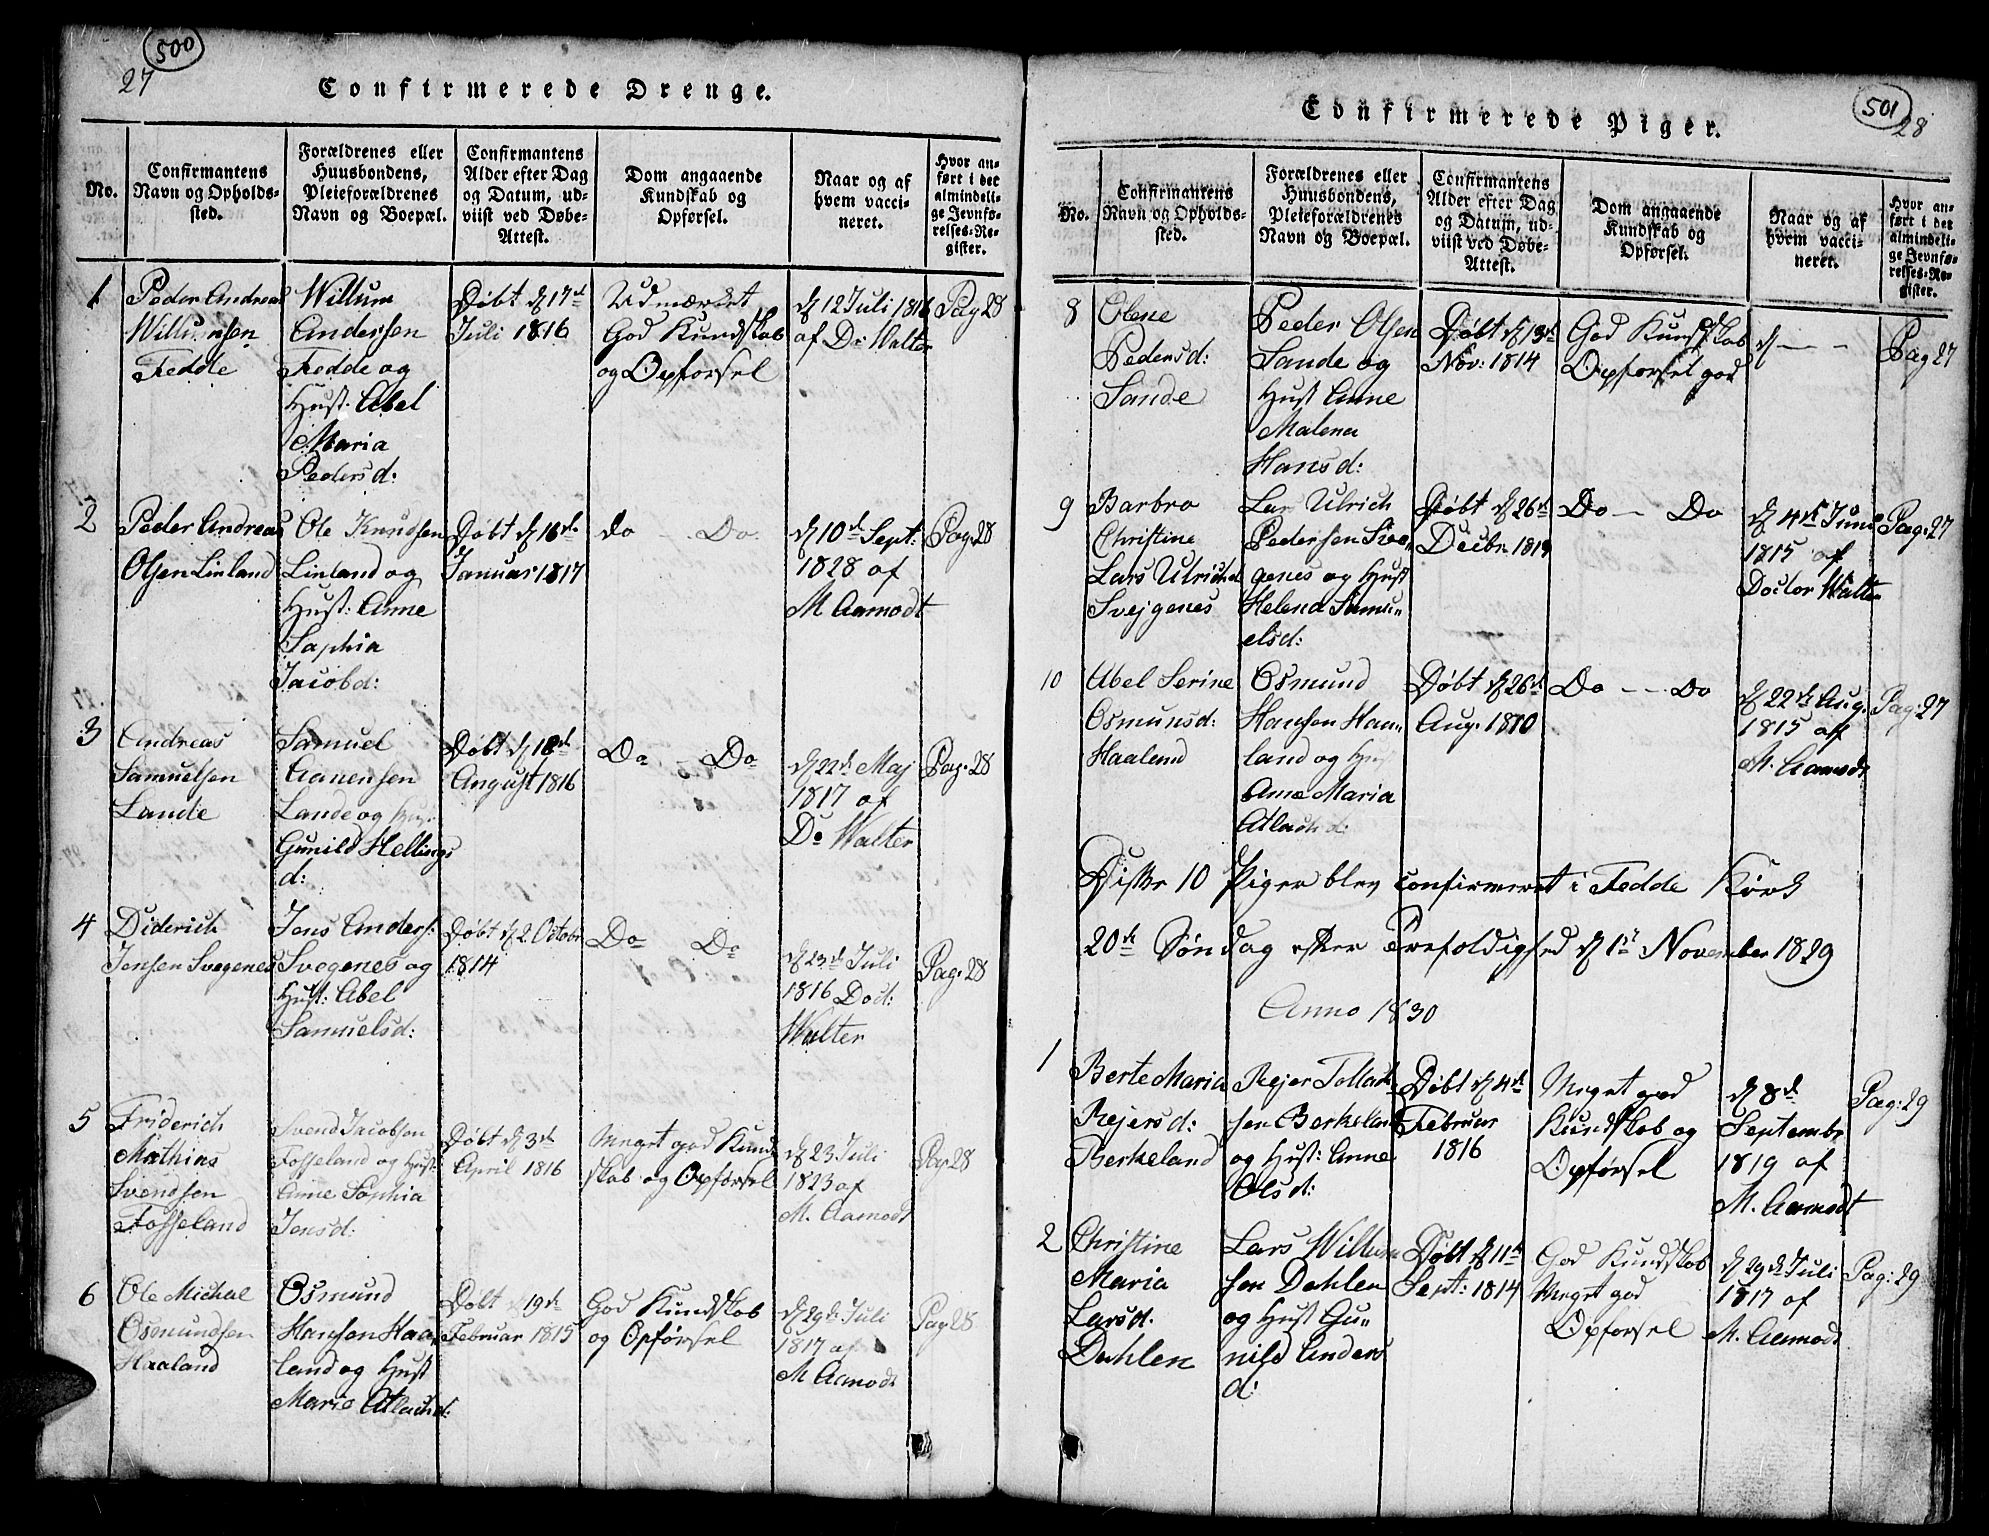 500
27
Confirmerede Drenge.
No.
Confirmantens
Navn og Opholds-
sted.
Forældrenes eller
Huusbondens,
Pleieforældrenes
Navn og Boepæl.
Confirmantens
Alder efter Dag
og Datum, ud-
viist ved Døbe-
Attest.
Dom angaaende
Kundskab og
Opførsel.
Naar og af
hvem vacci-
neret.
Hvor an-
ført i det
almindeli-
ge Jevnfø-
relses-Re-
gister.
1
Peder Andreas
Willumsen
Fedde
Willum
Andersen
Fedde og
Hust: Abel
Maria
Pedersd:
Døbt d 17d
Juli 1816
Udmærket
God Kundskab
og Opførsel
d 12 Juli 1816
af Dr Walter
Pag 28
2
Peder Andreas
Olsen Linland
Ole Knudsen
Linland og
Hust: Anne
Saphia
Jacobd:
Døbt d 16de
Januar 1817
do - Do
d 10d Sept:
1828 af
M Aamodt
Pag 28
3
Andreas
Samuelsen
Lande
Samuel
Aanensen
Lande og Hust
Gunild Hellings
d:
Døbt d 18d
August 1816
Do - Do
d 22d Maj
1817 af
Do Walter
Pag: 28
4
Diderich
Jensen Svegenes
Jens Anders:
Svegenes og
Hust: Abel
Samuelsd:
Døbt d 2. Octobr
1814
Do Do
d 23d Juli
1816 Doct:
Walter
Pag: 28
5
Friderich
Mathias
Svendsen
Fosseland
Svend Jacobsen
Fosseland og Hust:
Anne Sophia
Jensd:
Døbt d 3d
April 1816
Meget god Kund
skab og Opførsel
d 23 Juli
1823 af
M. Aamodt
Pag 28
6
Ole Michal
Osmundsen
Haaland
Osmund
Hansen Haa
land og Hust
Marie Atlachd:
Døbt d 19d
Februar 1815
God Kundskab
og Opførsel
d 29d Juli
1817 af
M Aamodt
Pag 28
501
28
Confirmerede Piger.
No.
Confirmantens
Navn og Opholds-
sted.
Forældrenes eller
Huusbondens,
Pleieforældrenes
Navn og Boepæl.
Confirmantens
Alder efter Dag
og Datum, ud-
viist ved Døbe-
Attest.
Dom angaaende
Kundskab og
Opførsel.
Naar og af
hvem vacci-
neret.
Hvor an-
ført i det
almindeli-
ge Jevnfø-
relses-Re-
gister.
8
Olene
Pedersd:
Sande
Peder Olsen
Sande og
Hust Anne
Malena
Hansd:
Døbt d 13d
Nov: 1814
God Kundskab
Opførsel god
d — –
Pag 27
9
Barbro
Christine
Lars Ulrichsd
Svejgenes
Lar Ulrich
Pedersen Sve„
genes og Hust
Helena Samu„
elsd:
Døbt d 26d
Decbr. 1814
Do — Do
d 4d Juni
1815 af
Doctor Walter
Pag: 27
10
Abel Serine
Osmunsd:
Haaland
Osmund
Hansen Haa„
land og Hu
Anne Maria
Atlachd:
Døbt d 26d
Aug. 1810
Do — Do
d 22d Aug.
1815 af
M. Aamodt
Pag: 27
Disse 10 Piger blev confirmeret i Fedde Kirk
20de Søndag efter Trefoldighed d 1st November 1829
Anno 1830
1
Berte Maria
Rejersd:
Berkeland
Rejer Tollack
sen Berkeland
og Hust: Anne
Olsd:
Døbt d 4d
Februar
1816
Meget god
Kundskab og
Opførsel
d 8d
Septembr
1819 af
M. Aamodt
Pag: 29
2
Christine
Maria
Larsd.
Dahlen
Lars Willum
sen Dahlen
og Hust Gu„
nild Anders
d:
Døbt d 11d
Sept: 1814
God Kundskab
Meget god
Opførsel
d 29d Juli
1817 af
M. Aamodt
Pag: 29